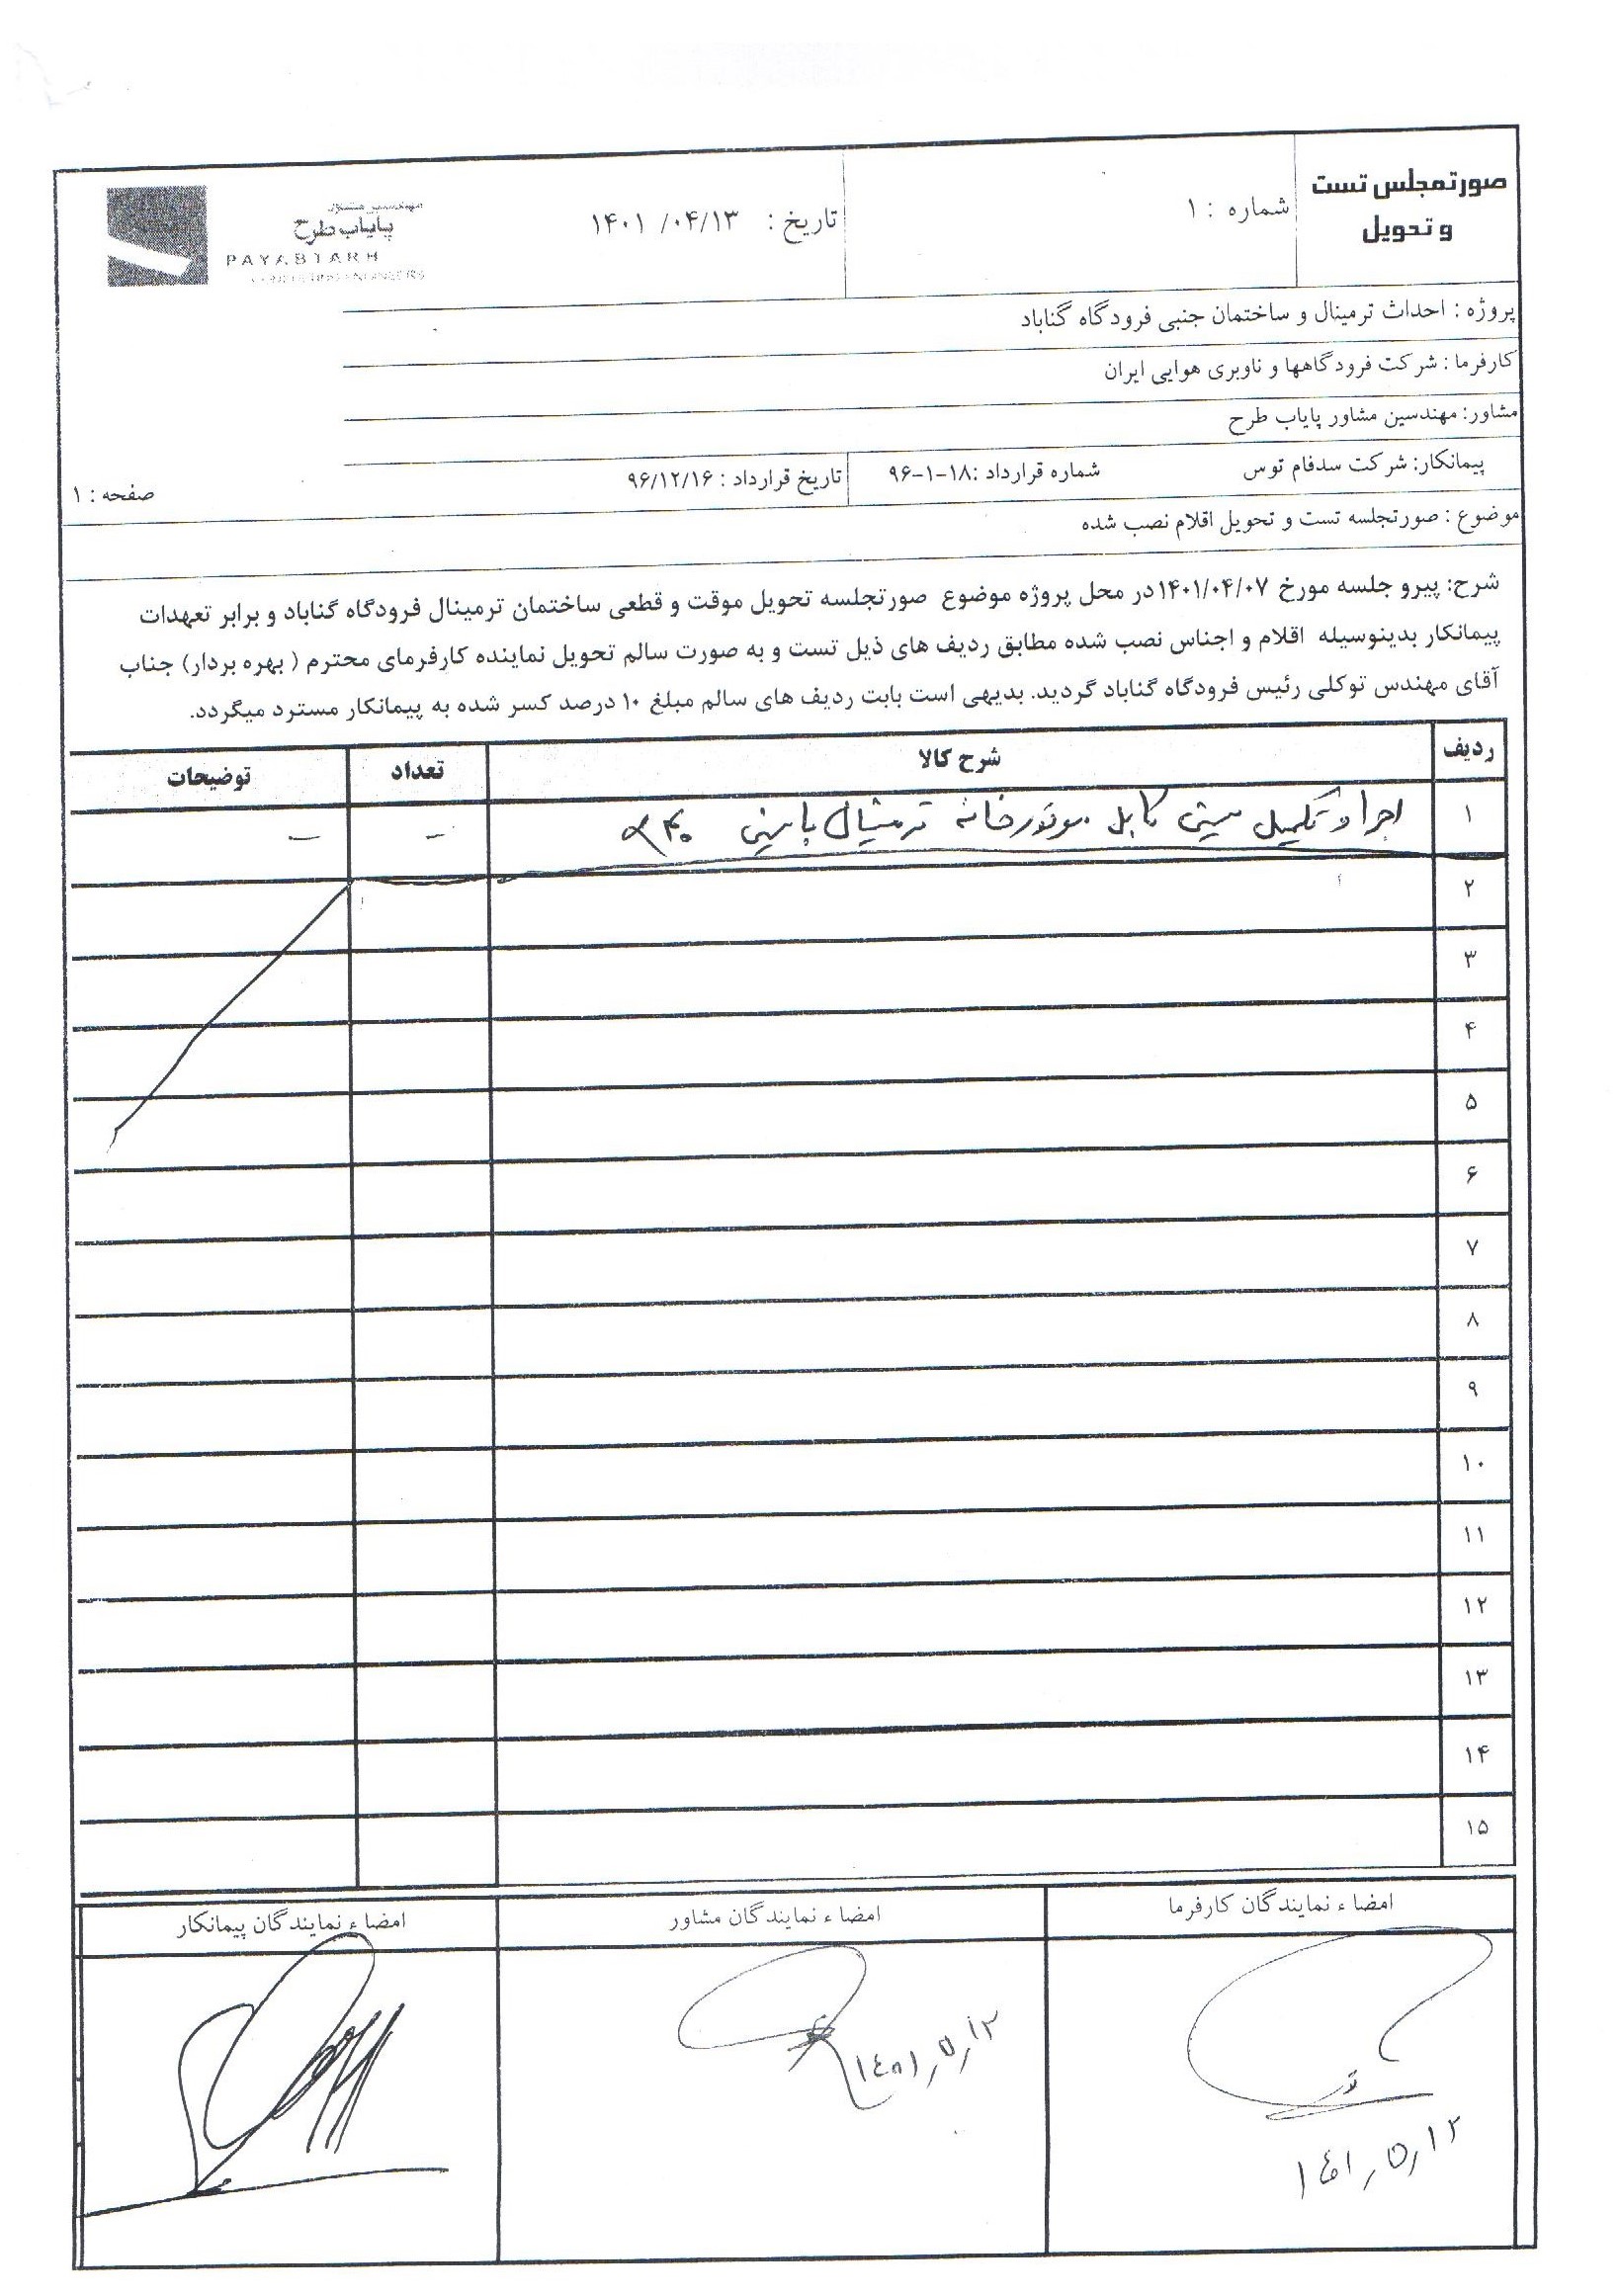 صورتمجلس تست
و تحویل
شماره : ۱
تاریخ : ۱۴۰۱ /۰۴/۱۳
مهندسین مشاور
پایاب طرح
PAYABTARH
CONSULTING ENGINEERS
پروژه : احداث ترمینال و ساختمان جنبی فرودگاه گناباد
کارفرما : شرکت فرودگاهها و ناوبری هوایی ایران
مشاور: مهندسین مشاور پایاب طرح
پیمانکار: شرکت سدفام توس
شماره قرارداد :۱۸-۱-۹۶
تاریخ قرارداد : ۹۶/۱۲/۱۶
صفحه : ۱
موضوع : صورتجلسه تست و تحویل اقلام نصب شده
شرح: پیرو جلسه مورخ ۱۴۰۱/۰۴/۰۷در محل پروژه موضوع صورتجلسه تحویل موقت و قطعی ساختمان ترمینال فرودگاه گناباد و برابر تعهدات
پیمانکار بدینوسیله اقلام و اجناس نصب شده مطابق ردیف های ذیل تست و به صورت سالم تحویل نماینده کارفرمای محترم ( بهره بردار) جناب
آقای مهندس توکلی رئیس فرودگاه گناباد گردید. بدیهی است بابت ردیف های سالم مبلغ ۱۰ درصد کسر شده به پیمانکار مسترد میگردد.
ردیف شرح کالا تعداد توضیحات
۱ اجرا و تکمیل سینی کابل موتورخانه ترمینال - -
۲
۳
۴
۵
۶
۷
۸
۹
۱۰
۱۱
۱۲
۱۳
۱۴
۱۵
امضا ء نمایندگان کارفرما
امضا ء نمایندگان مشاور
امضا ء نمایندگان پیمانکار
۱٤۰۱٫۵٫۱۲
۱٤۰۱٫۵٫۱۲